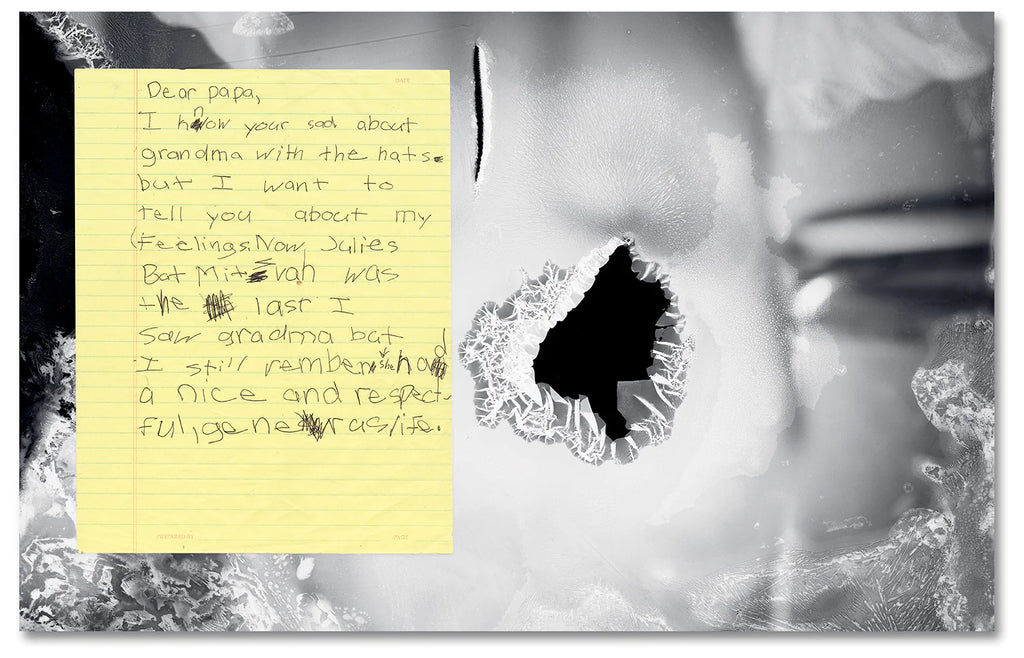 DATE
Dear papa,
I know your sad about
grandma with the hats.
but I want to
tell you about my
feelings. Now Julies
Bat Mitzvah was
the last I
saw gradma but
I still rember she had
a nice and respect-
ful, generas life.
PREPARED BY PAGE